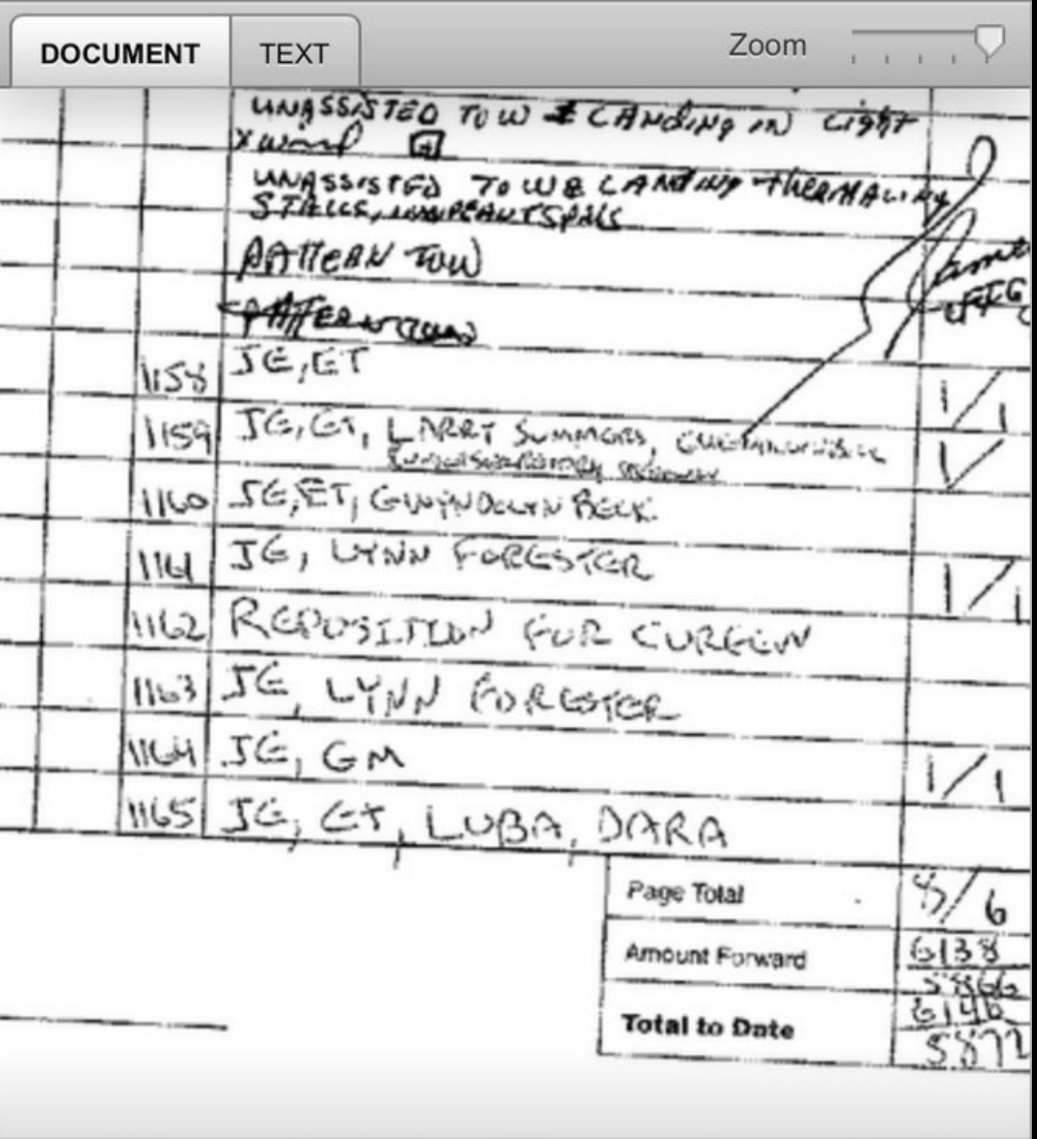 DOCUMENT TEXT Zoom
UNASSISTED TOW & LANDING IN LIGHT
X WIND
UNASSISTED TOW & LANDING THERMALING
STALLS,
PATTERN TOW
PATTERN TOW
1158 JE, ET 1/1
1159 JE, ET, LARRY SUMMERS,
1160 JE, ET, GWYNDOLYN BECK
1161 JE, LYNN FORESTER 1/1
1162 REPOSITION FOR CURFEW
1163 JE, LYNN FORESTER
1164 JE, GM 1/1
1165 JE, ET, LUBA, DARA
Page Total 8/6
Amount Forward 6138
5866
Total to Date 6146
5872